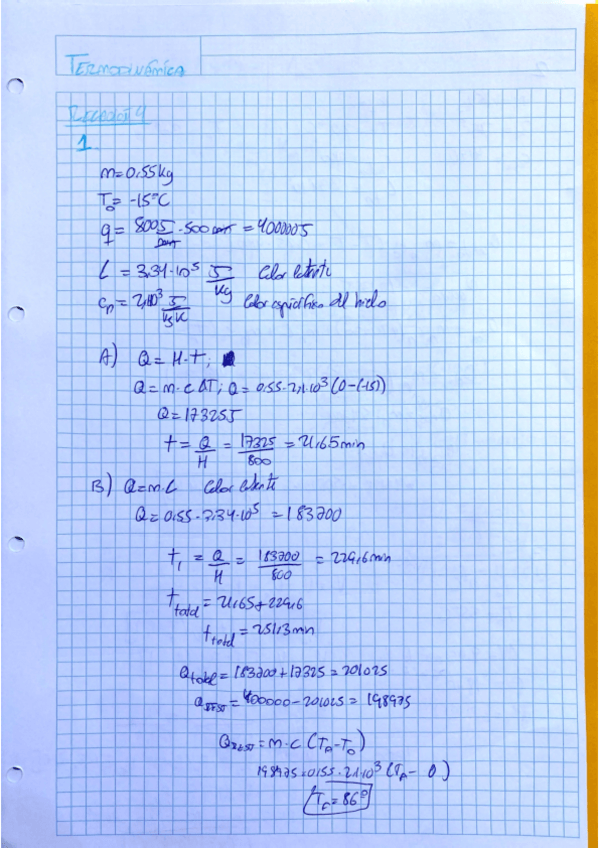 TERMODINÁMICA
1
m=0.55kg
T₀= -15ºC
q= 800J/min · 500 min = 400000J
L = 3.34·10⁵ J/kg Calor latente
cₚ= 2,1·10³ J/kg K Calor específico del hielo
A) Q= H·t;
Q=m·c ΔT; Q= 0.55·2,1·10³ (0-(-15))
Q=17325J
t= Q/H = 17325/800 = 21,65min
B) Q=m·L Calor latente
Q=0.55·3.34·10⁵ =183700
t₁ = Q/H = 183700/800 = 229,6min
t total = 21,65+229,6
t total = 251,3min
Q total = 183700+17325=201025
Q rest = 400000-201025= 198975
Q rest = m·c (T_f-T₀)
198975=0,55·2.1·10³ (T_f- 0)
T_f=86º